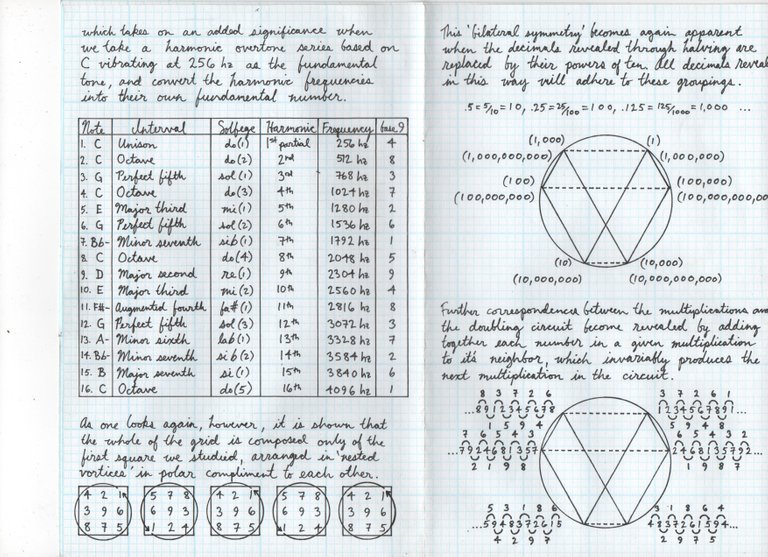 which takes on an added significance when
we take a harmonic overtone series based on
C vibrating at 256 hz as the fundamental
tone, and convert the harmonic frequencies
into their own fundamental number.
Note Interval Solfege Harmonic Frequency base 9
1. C Unison do(1) 1st partial 256 hz 4
2. C Octave do(2) 2nd 512 hz 8
3. G Perfect fifth sol(1) 3rd 768 hz 3
4. C Octave do(3) 4th 1024 hz 7
5. E Major third mi(1) 5th 1280 hz 2
6. G Perfect fifth sol(2) 6th 1536 hz 6
7. Bb- Minor seventh sib(1) 7th 1792 hz 1
8. C Octave do(4) 8th 2048 hz 5
9. D Major second re(1) 9th 2304 hz 9
10. E Major third mi(2) 10th 2560 hz 4
11. F#- Augmented fourth fa#(1) 11th 2816 hz 8
12. G Perfect fifth sol(3) 12th 3072 hz 3
13. A- Minor sixth lab(1) 13th 3328 hz 7
14. Bb- Minor seventh sib(2) 14th 3584 hz 2
15. B Major seventh si(1) 15th 3840 hz 6
16. C Octave do(5) 16th 4096 hz 1
As one looks again, however, it is shown that
the whole of the grid is composed only of the
first square we studied, arranged in 'nested
vortices' in polar compliment to each other.
4 2 1 5 7 8 4 2 1 5 7 8 4 2 1
3 9 6 3 9 6 3 9 6 3 9 6 3 9 6
8 7 5 1 2 4 8 7 5 1 2 4 8 7 5
This 'bilateral symmetry' becomes again apparent
when the decimals revealed through halving are
replaced by their powers of ten. All decimals reveal
in this way will adhere to these groupings.
.5=5/10=10, .25=25/100=100, .125=125/1000=1,000 ...
(1,000) (1)
(1,000,000,000) (1,000,000)
(100) (100,000)
(100,000,000) (100,000,000,00
(10) (10,000)
(10,000,000) (10,000,000,000)
Further correspondences between the multiplications an
the doubling circuit become revealed by adding
together each number in a given multiplication
to its neighbor, which invariably produces the
next multiplication in the circuit.
8 3 7 2 6 3 7 2 6 1
...8912345678 ...1234567891...
1 5 9 4 5 9 4 8
7 6 5 4 3 6 5 4 3 2
...7924681357 2468135792...
2 1 9 8 1 9 8 7
5 3 1 8 6 3 1 8 6 4
...5948372615 4837261594...
4 2 9 7 2 9 7 5